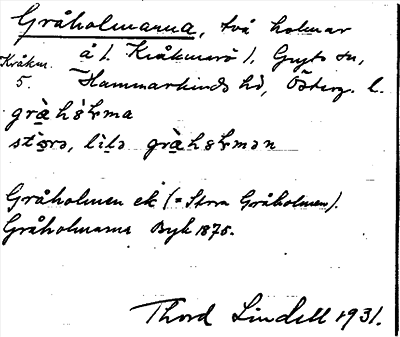 Gråholmarna, två holmar
å f. Kråkmarö f. Gryts sn,
Kråkm.
5. Hammarkinds hd, Österg. l.
gràhȯłma
stȯ̀ra, lìla gràhȯłmən
Gråholmen ek (= Stora Gråholmen).
Gråholmarne Byk 1875.
Thord Lindell 1931.